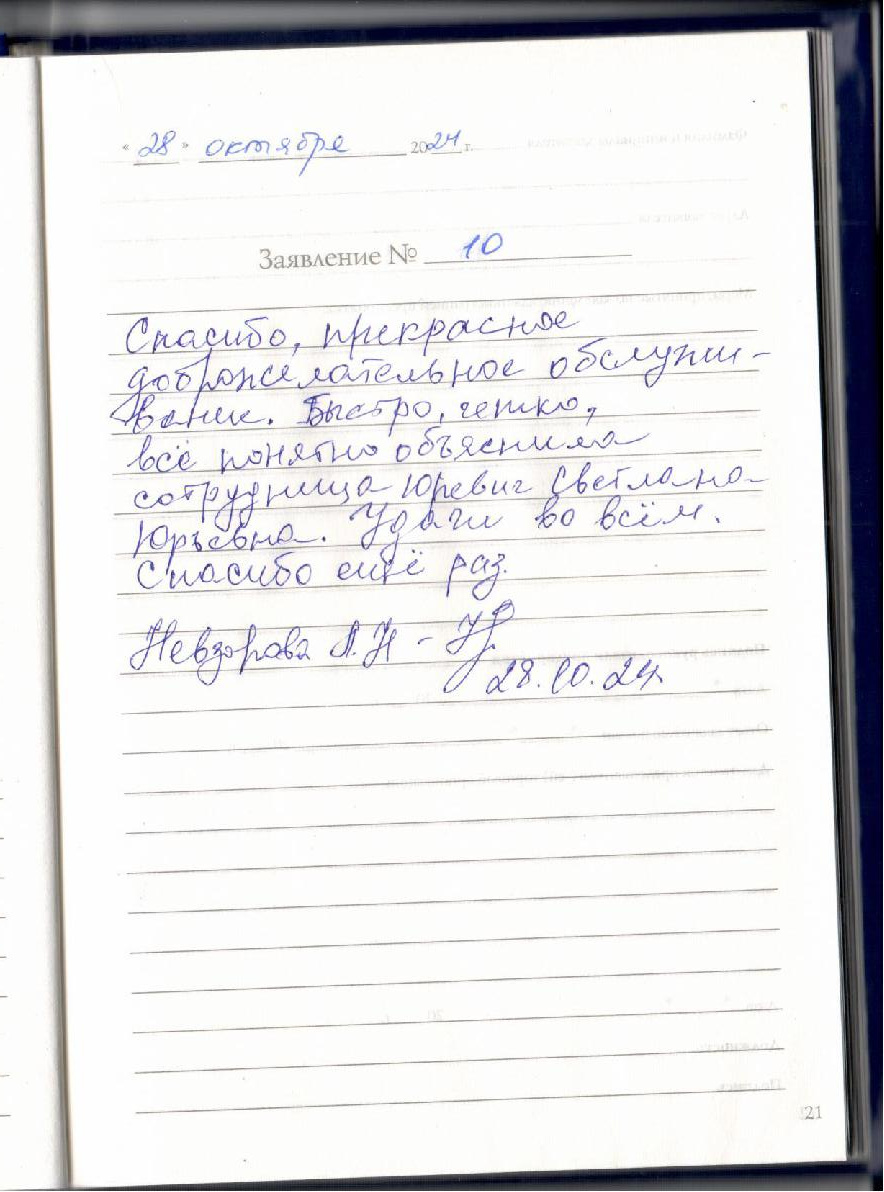 « 28 » октября 2024 г.
Заявление № 10
Спасибо, прекрасное
доброжелательное обслужи-
вание. Быстро, четко,
всё понятно объяснила
сотрудница Юревич Светлана
Юрьевна. Удачи во всём.
Спасибо ещё раз.
Невзорова Л.Н -
28.10.24г
21